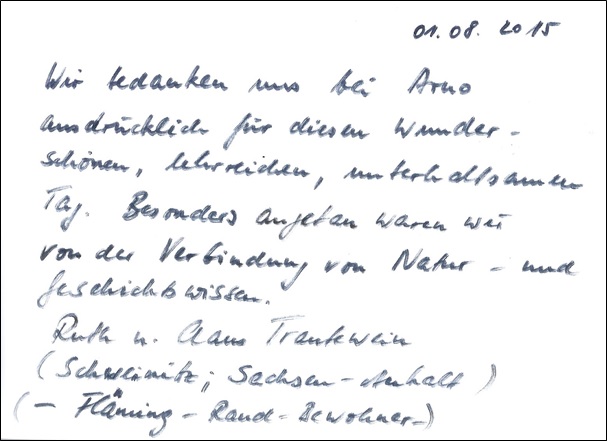 01.08.2015
Wir bedanken uns bei Arno
ausdrücklich für diesen wunder-
schönen, lehrreichen, unterhaltsamen
Tag. Besonders angetan waren wir
von der Verbindung von Natur- und
Geschichtswissen.
Ruth u. Claus Trautewein
(Schweinitz; Sachsen-Anhalt)
(- Fläming-Rand-Bewohner-)